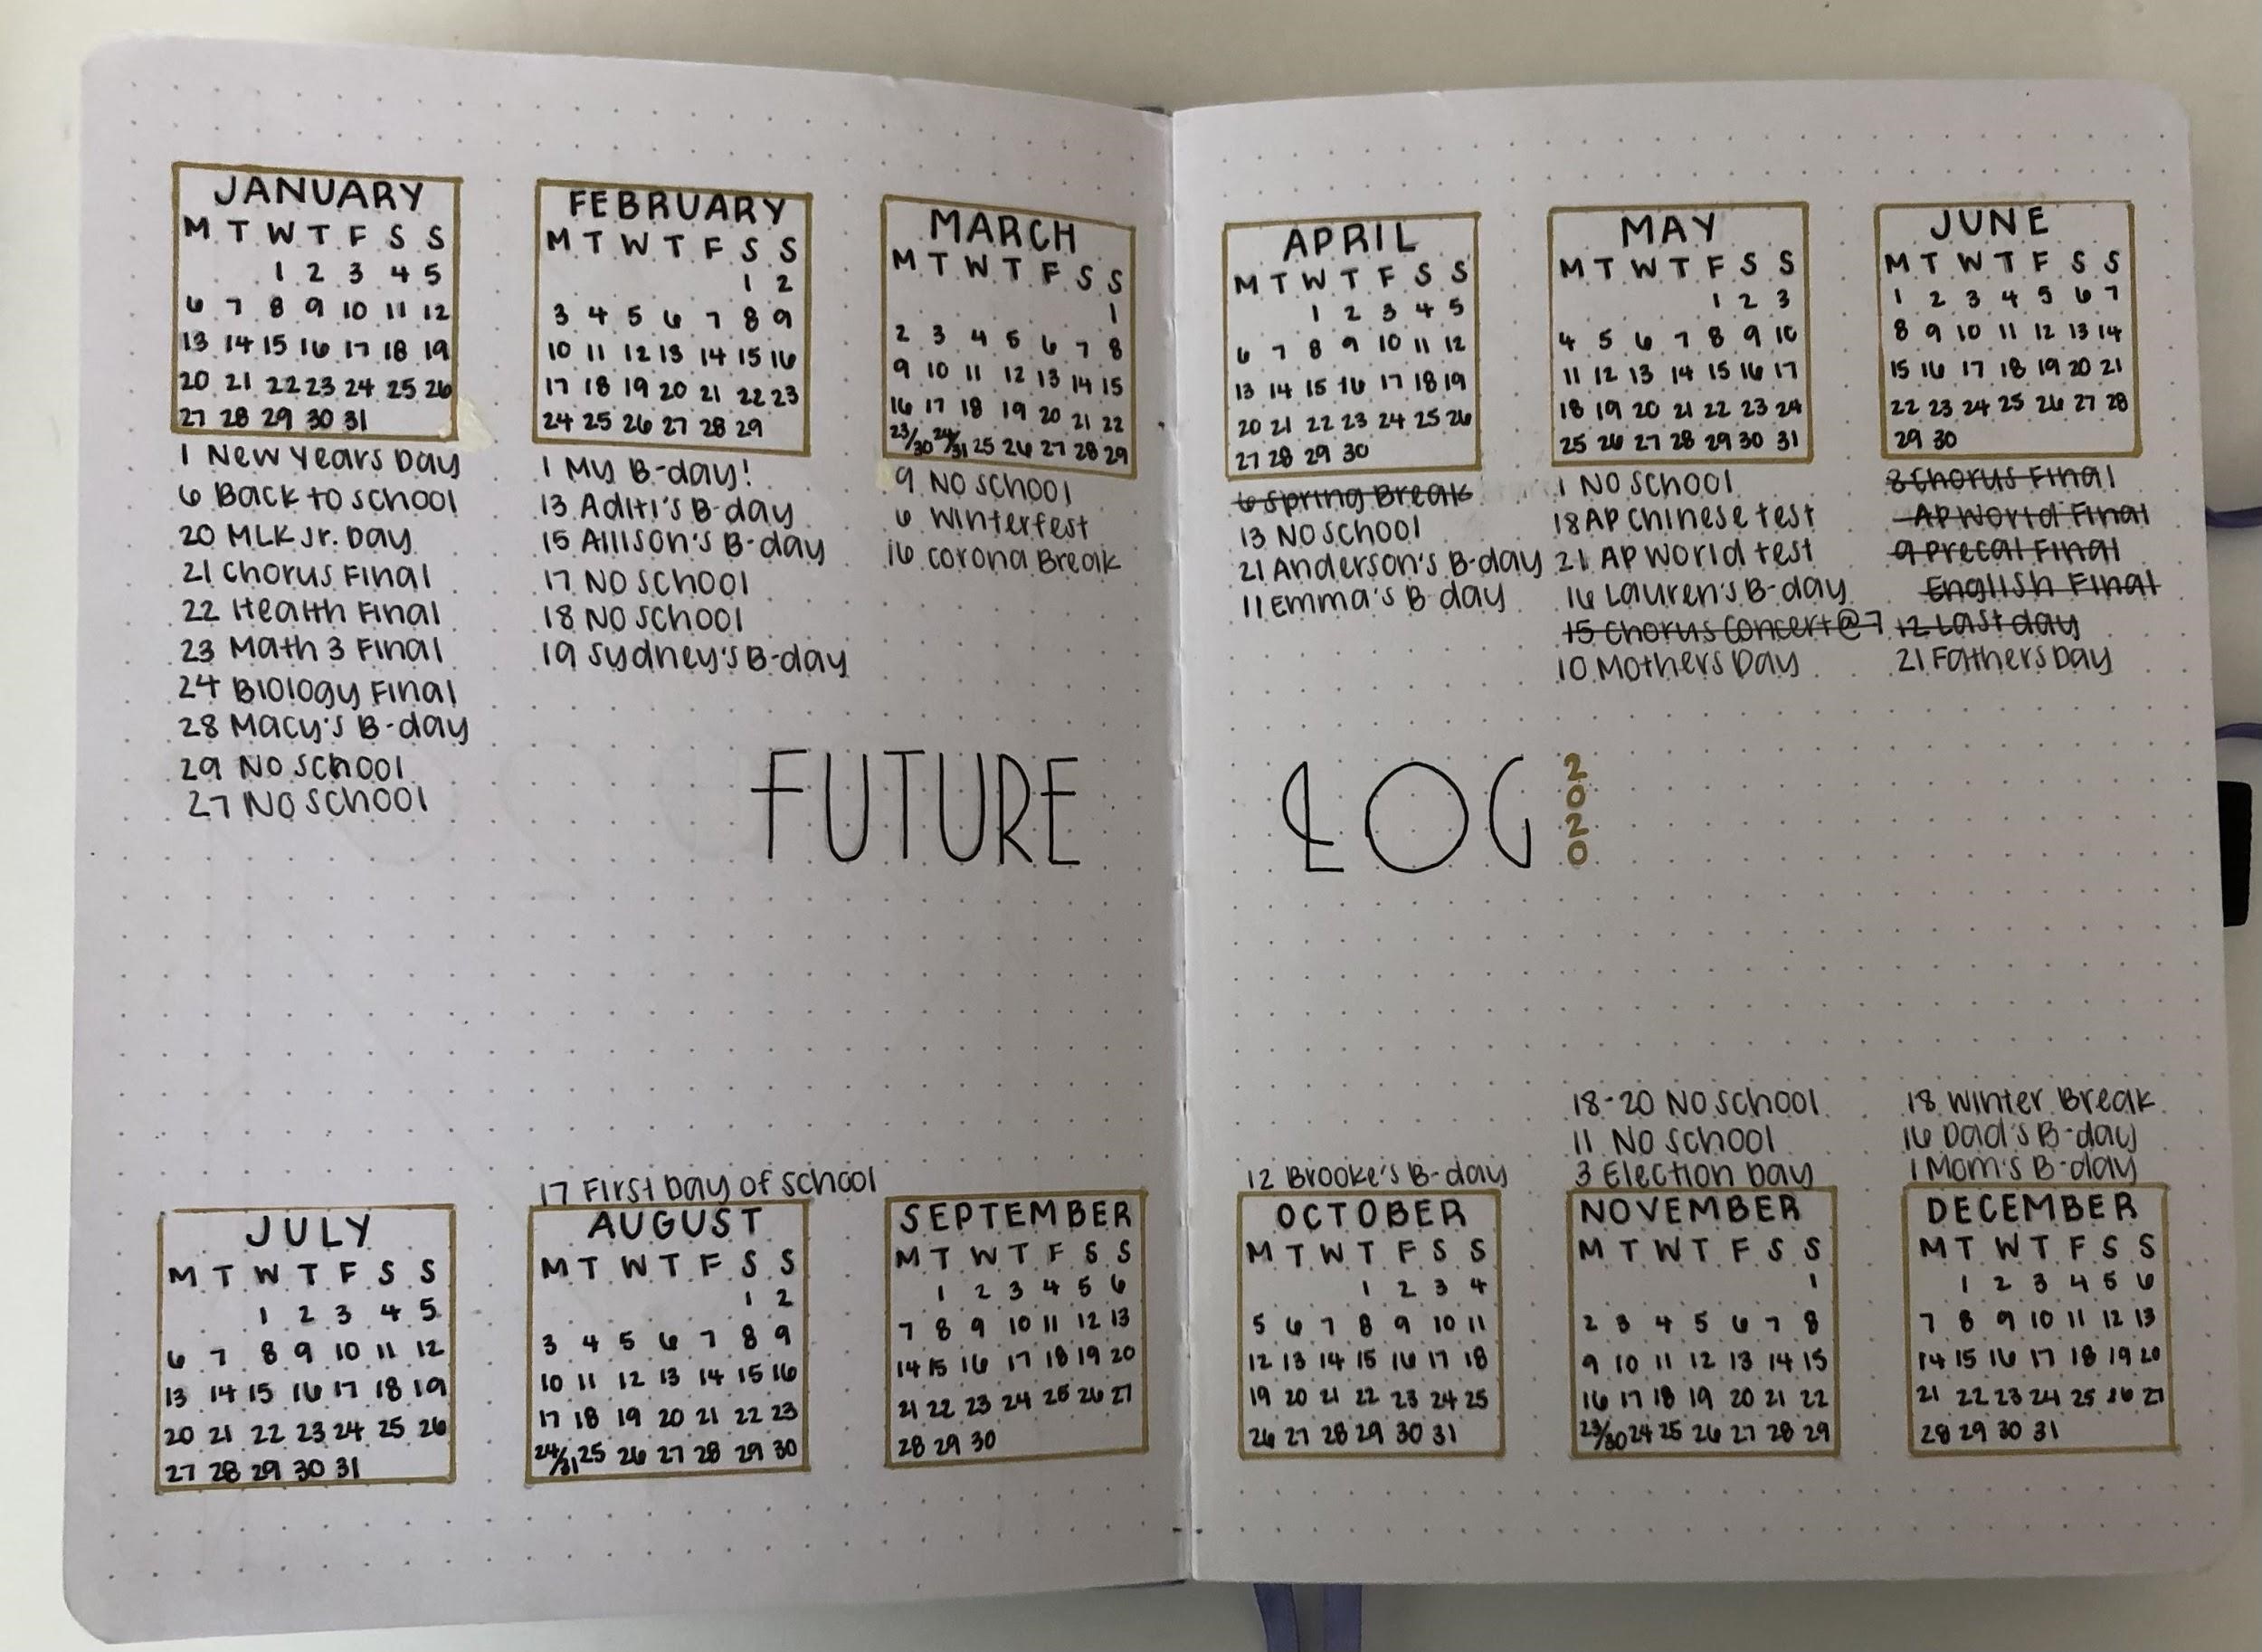 JANUARY
M T W T F S S
1 2 3 4 5
6 7 8 9 10 11 12
13 14 15 16 17 18 19
20 21 22 23 24 25 26
27 28 29 30 31
1 New Years Day
6 Back to school
20 MLK Jr. Day
21 Chorus Final
22 Health Final
23 Math 3 Final
24 Biology Final
28 Macy's B-day
29 No school
27 No school
FEBRUARY
M T W T F S S
1 2
3 4 5 6 7 8 9
10 11 12 13 14 15 16
17 18 19 20 21 22 23
24 25 26 27 28 29
1 My B-day!
13 Aditi's B-day
15 Allison's B-day
17 No school
18 No school
19 Sydney's B-day
MARCH
M T W T F S S
1
2 3 4 5 6 7 8
9 10 11 12 13 14 15
16 17 18 19 20 21 22
23/30 24/31 25 26 27 28 29
9 No school
6 Winterfest
16 Corona Break
APRIL
M T W T F S S
1 2 3 4 5
6 7 8 9 10 11 12
13 14 15 16 17 18 19
20 21 22 23 24 25 26
27 28 29 30
6 Spring Break
13 No school
21 Anderson's B-day
11 Emma's B day
MAY
M T W T F S S
1 2 3
4 5 6 7 8 9 10
11 12 13 14 15 16 17
18 19 20 21 22 23 24
25 26 27 28 29 30 31
1 No school
18 AP Chinese test
21 AP World test
16 Lauren's B-day
15 Chorus Concert @ 7
10 Mothers Day
JUNE
M T W T F S S
1 2 3 4 5 6 7
8 9 10 11 12 13 14
15 16 17 18 19 20 21
22 23 24 25 26 27 28
29 30
8 Chorus Final
AP World Final
9 Precal Final
English Final
12 Last day
21 Fathers Day
FUTURE LOG 2020
JULY
M T W T F S S
1 2 3 4 5
6 7 8 9 10 11 12
13 14 15 16 17 18 19
20 21 22 23 24 25 26
27 28 29 30 31
17 First Day of school
AUGUST
M T W T F S S
1 2
3 4 5 6 7 8 9
10 11 12 13 14 15 16
17 18 19 20 21 22 23
24/31 25 26 27 28 29 30
SEPTEMBER
M T W T F S S
1 2 3 4 5 6
7 8 9 10 11 12 13
14 15 16 17 18 19 20
21 22 23 24 25 26 27
28 29 30
12 Brooke's B-day
OCTOBER
M T W T F S S
1 2 3 4
5 6 7 8 9 10 11
12 13 14 15 16 17 18
19 20 21 22 23 24 25
26 27 28 29 30 31
18-20 No school
11 No school
3 Election Day
NOVEMBER
M T W T F S S
1
2 3 4 5 6 7 8
9 10 11 12 13 14 15
16 17 18 19 20 21 22
23/30 24 25 26 27 28 29
18 Winter Break
16 Dad's B-day
1 Mom's B-day
DECEMBER
M T W T F S S
1 2 3 4 5 6
7 8 9 10 11 12 13
14 15 16 17 18 19 20
21 22 23 24 25 26 27
28 29 30 31